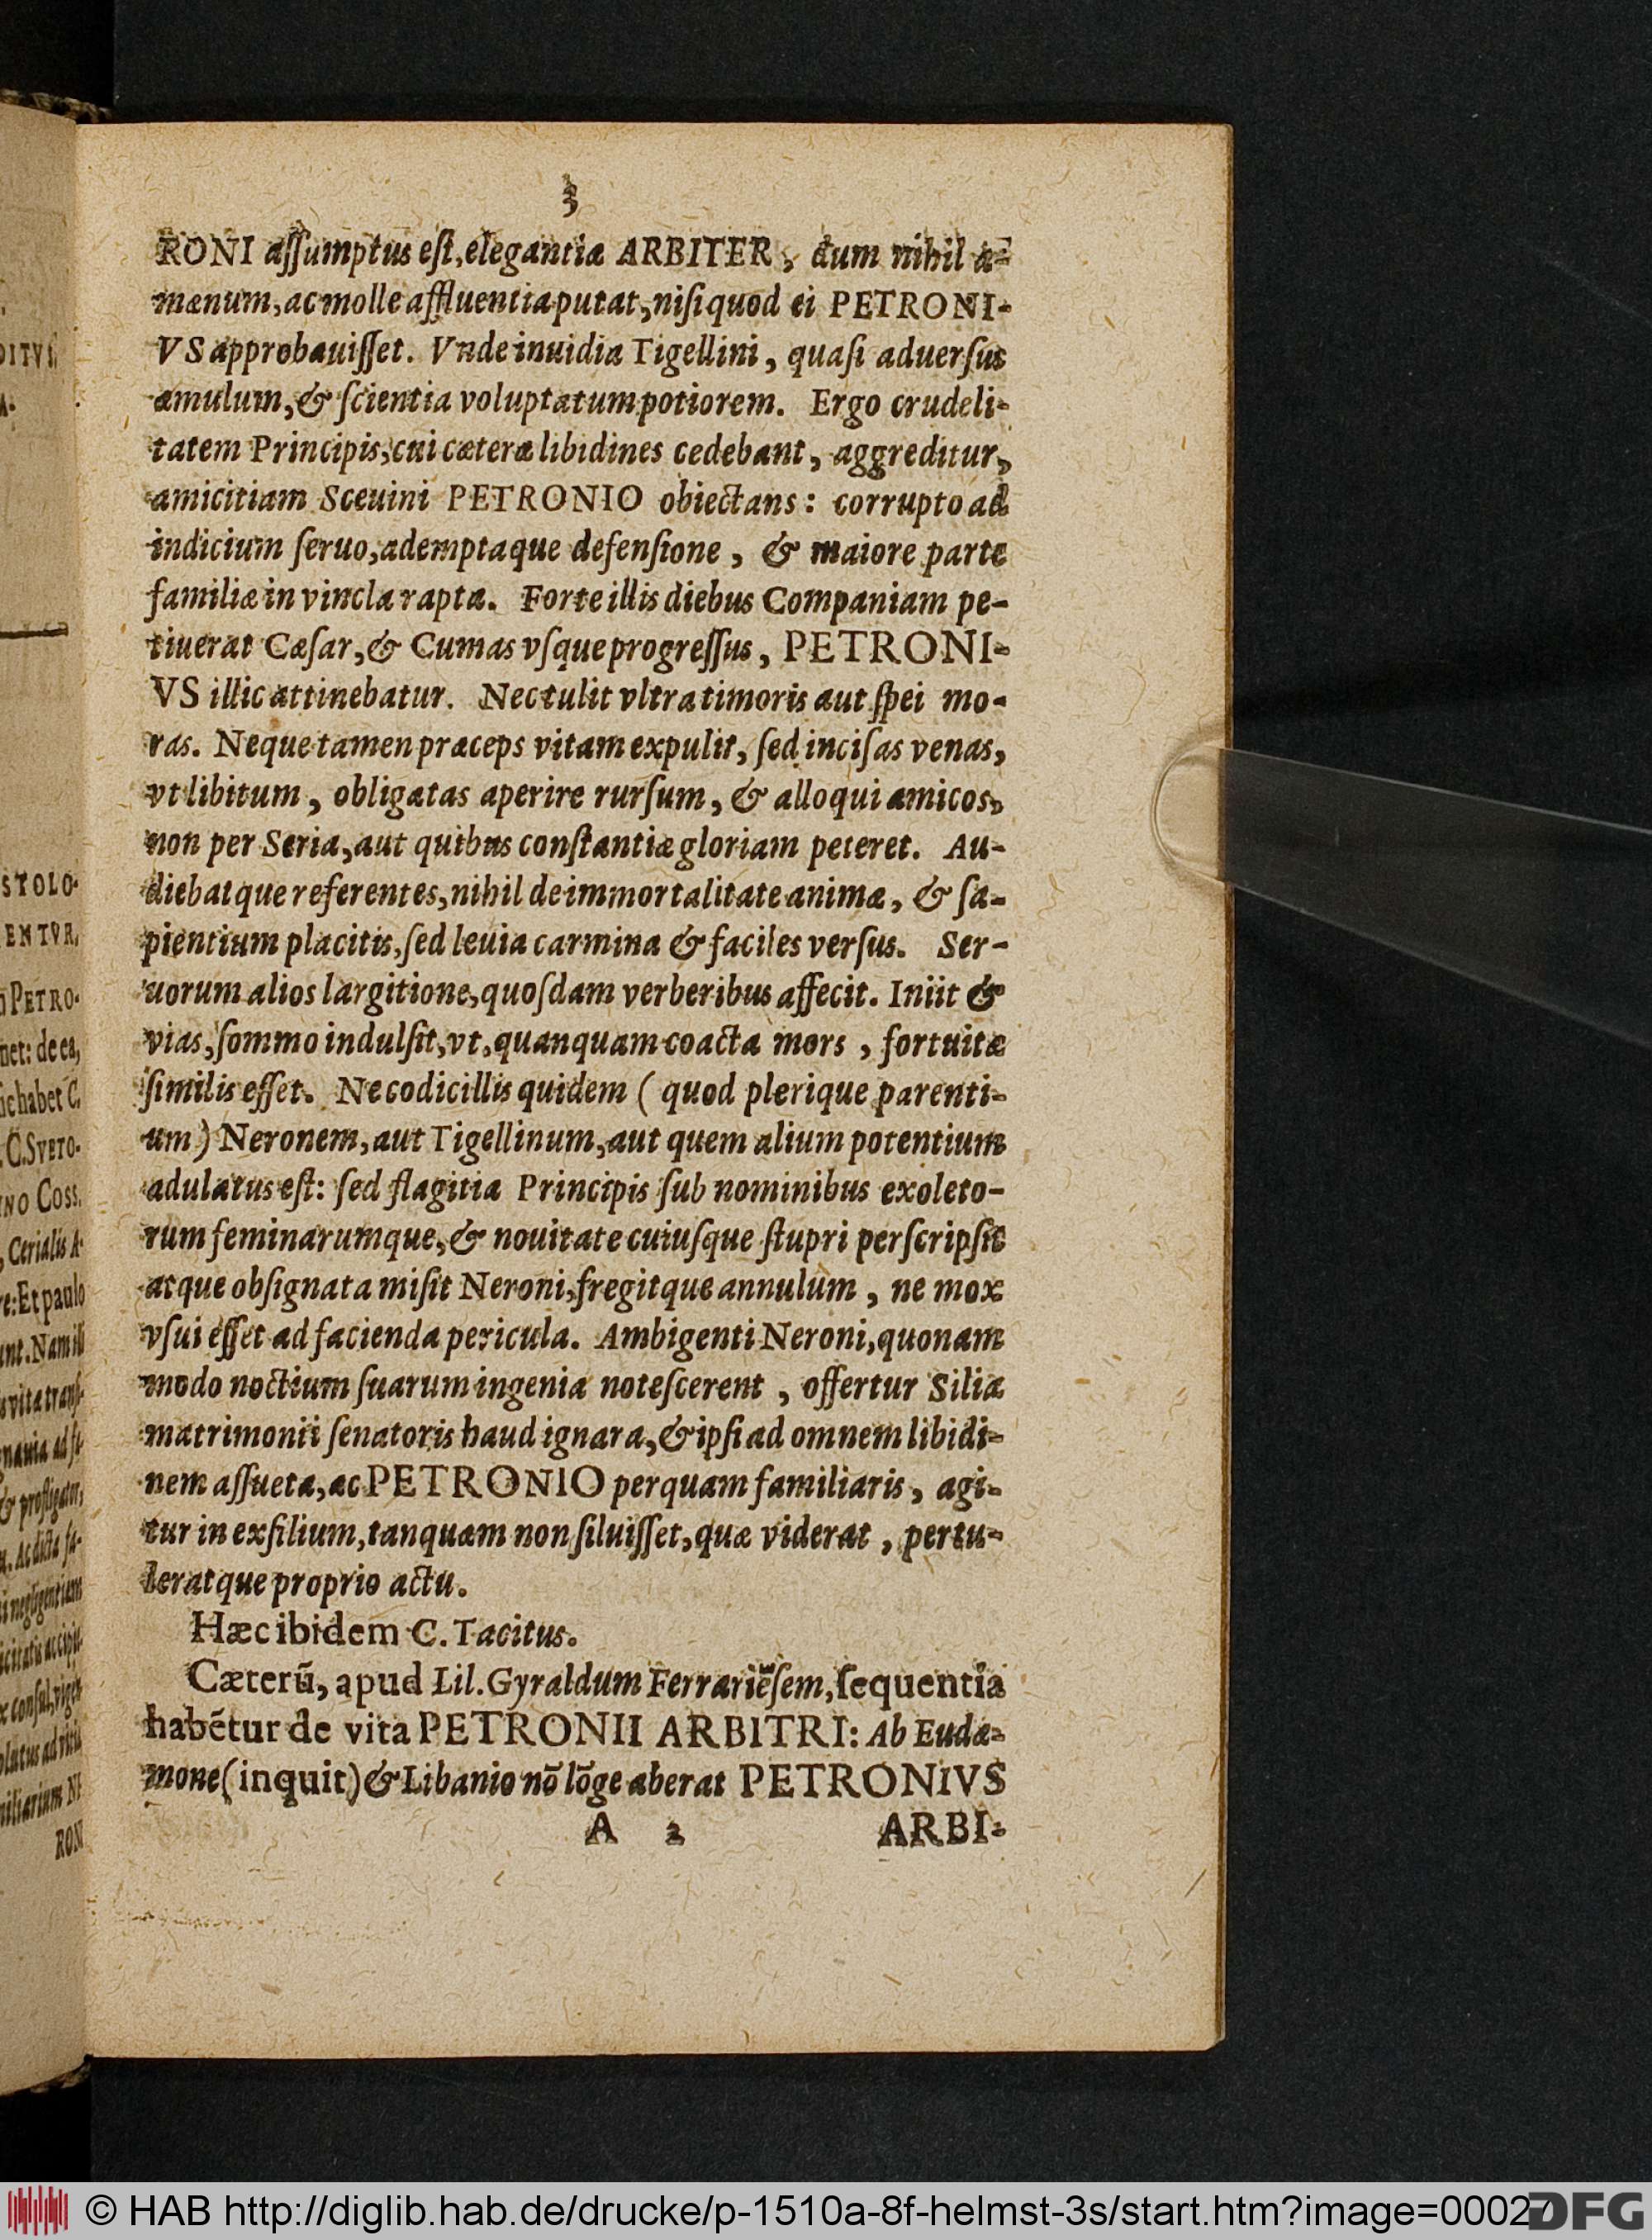 3
RONI aſſumptus eſt, elegantiæ ARBITER, dum nihil a-
mænum, ac molle affluentia putat, niſi quod ei PETRONI-
VS approbauiſſet. Vnde inuidia Tigellini, quaſi aduerſus
æmulum, & ſcientia voluptatum potiorem. Ergo crudeli-
tatem Principis, cui cæteræ libidines cedebant, aggreditur,
amicitiam Sceuini PETRONIO obiectans: corrupto ad
indicium ſeruo, ademptaque defenſione, & maiore parte
familiæ in vincla rapta. Forte illis diebus Companiam pe-
tiuerat Cæſar, & Cumas vſque progreſſus, PETRONI-
VS illic attinebatur. Nec tulit vltra timoris aut ſpei mo-
ras. Neque tamen præceps vitam expulit, ſed inciſas venas,
vt libitum, obligatas aperire rurſum, & alloqui amicos,
non per Seria, aut quibus conſtantiæ gloriam peteret. Au-
diebatque referentes, nihil de immortalitate animæ, & ſa-
pientium placitis, ſed leuia carmina & faciles verſus. Ser-
uorum alios largitione, quoſdam verberibus affecit. Iniit &
vias, ſommo indulſit, vt, quanquam coacta mors, fortuitæ
ſimilis eſſet. Ne codicillis quidem (quod plerique parenti-
um) Neronem, aut Tigellinum, aut quem alium potentium
adulatus eſt: ſed flagitia Principis ſub nominibus exoleto-
rum feminarumque, & nouitate cuiuſque ſtupri perſcripſit
atque obſignata miſit Neroni, fregitque annulum, ne mox
vſui eſſet ad facienda pericula. Ambigenti Neroni, quonam
modo noctium ſuarum ingenia noteſcerent, offertur Silia
matrimonii ſenatoris haud ignara, & ipſi ad omnem libidi-
nem aſſueta, ac PETRONIO perquam familiaris, agi-
tur in exſilium, tanquam non ſiluiſſet, quæ viderat, pertu-
leratque proprio actu.
Hæc ibidem C. Tacitus.
Cæterũ, apud Lil. Gyraldum Ferrariẽſem, ſequentia
habẽtur de vita PETRONII ARBITRI: Ab Eudæ-
mone (inquit) & Libanio nõ lõge aberat PETRONIVS
A 2 ARBI-
STOLO-
ENTVR,
PETRO-
net: de ea,
habet C.
C. SVETO-
NO Coss.
, Cerialis A-
Et paulo
RONI
© HAB http://diglib.hab.de/drucke/p-1510a-8f-helmst-3s/start.htm?image=00027
DFG